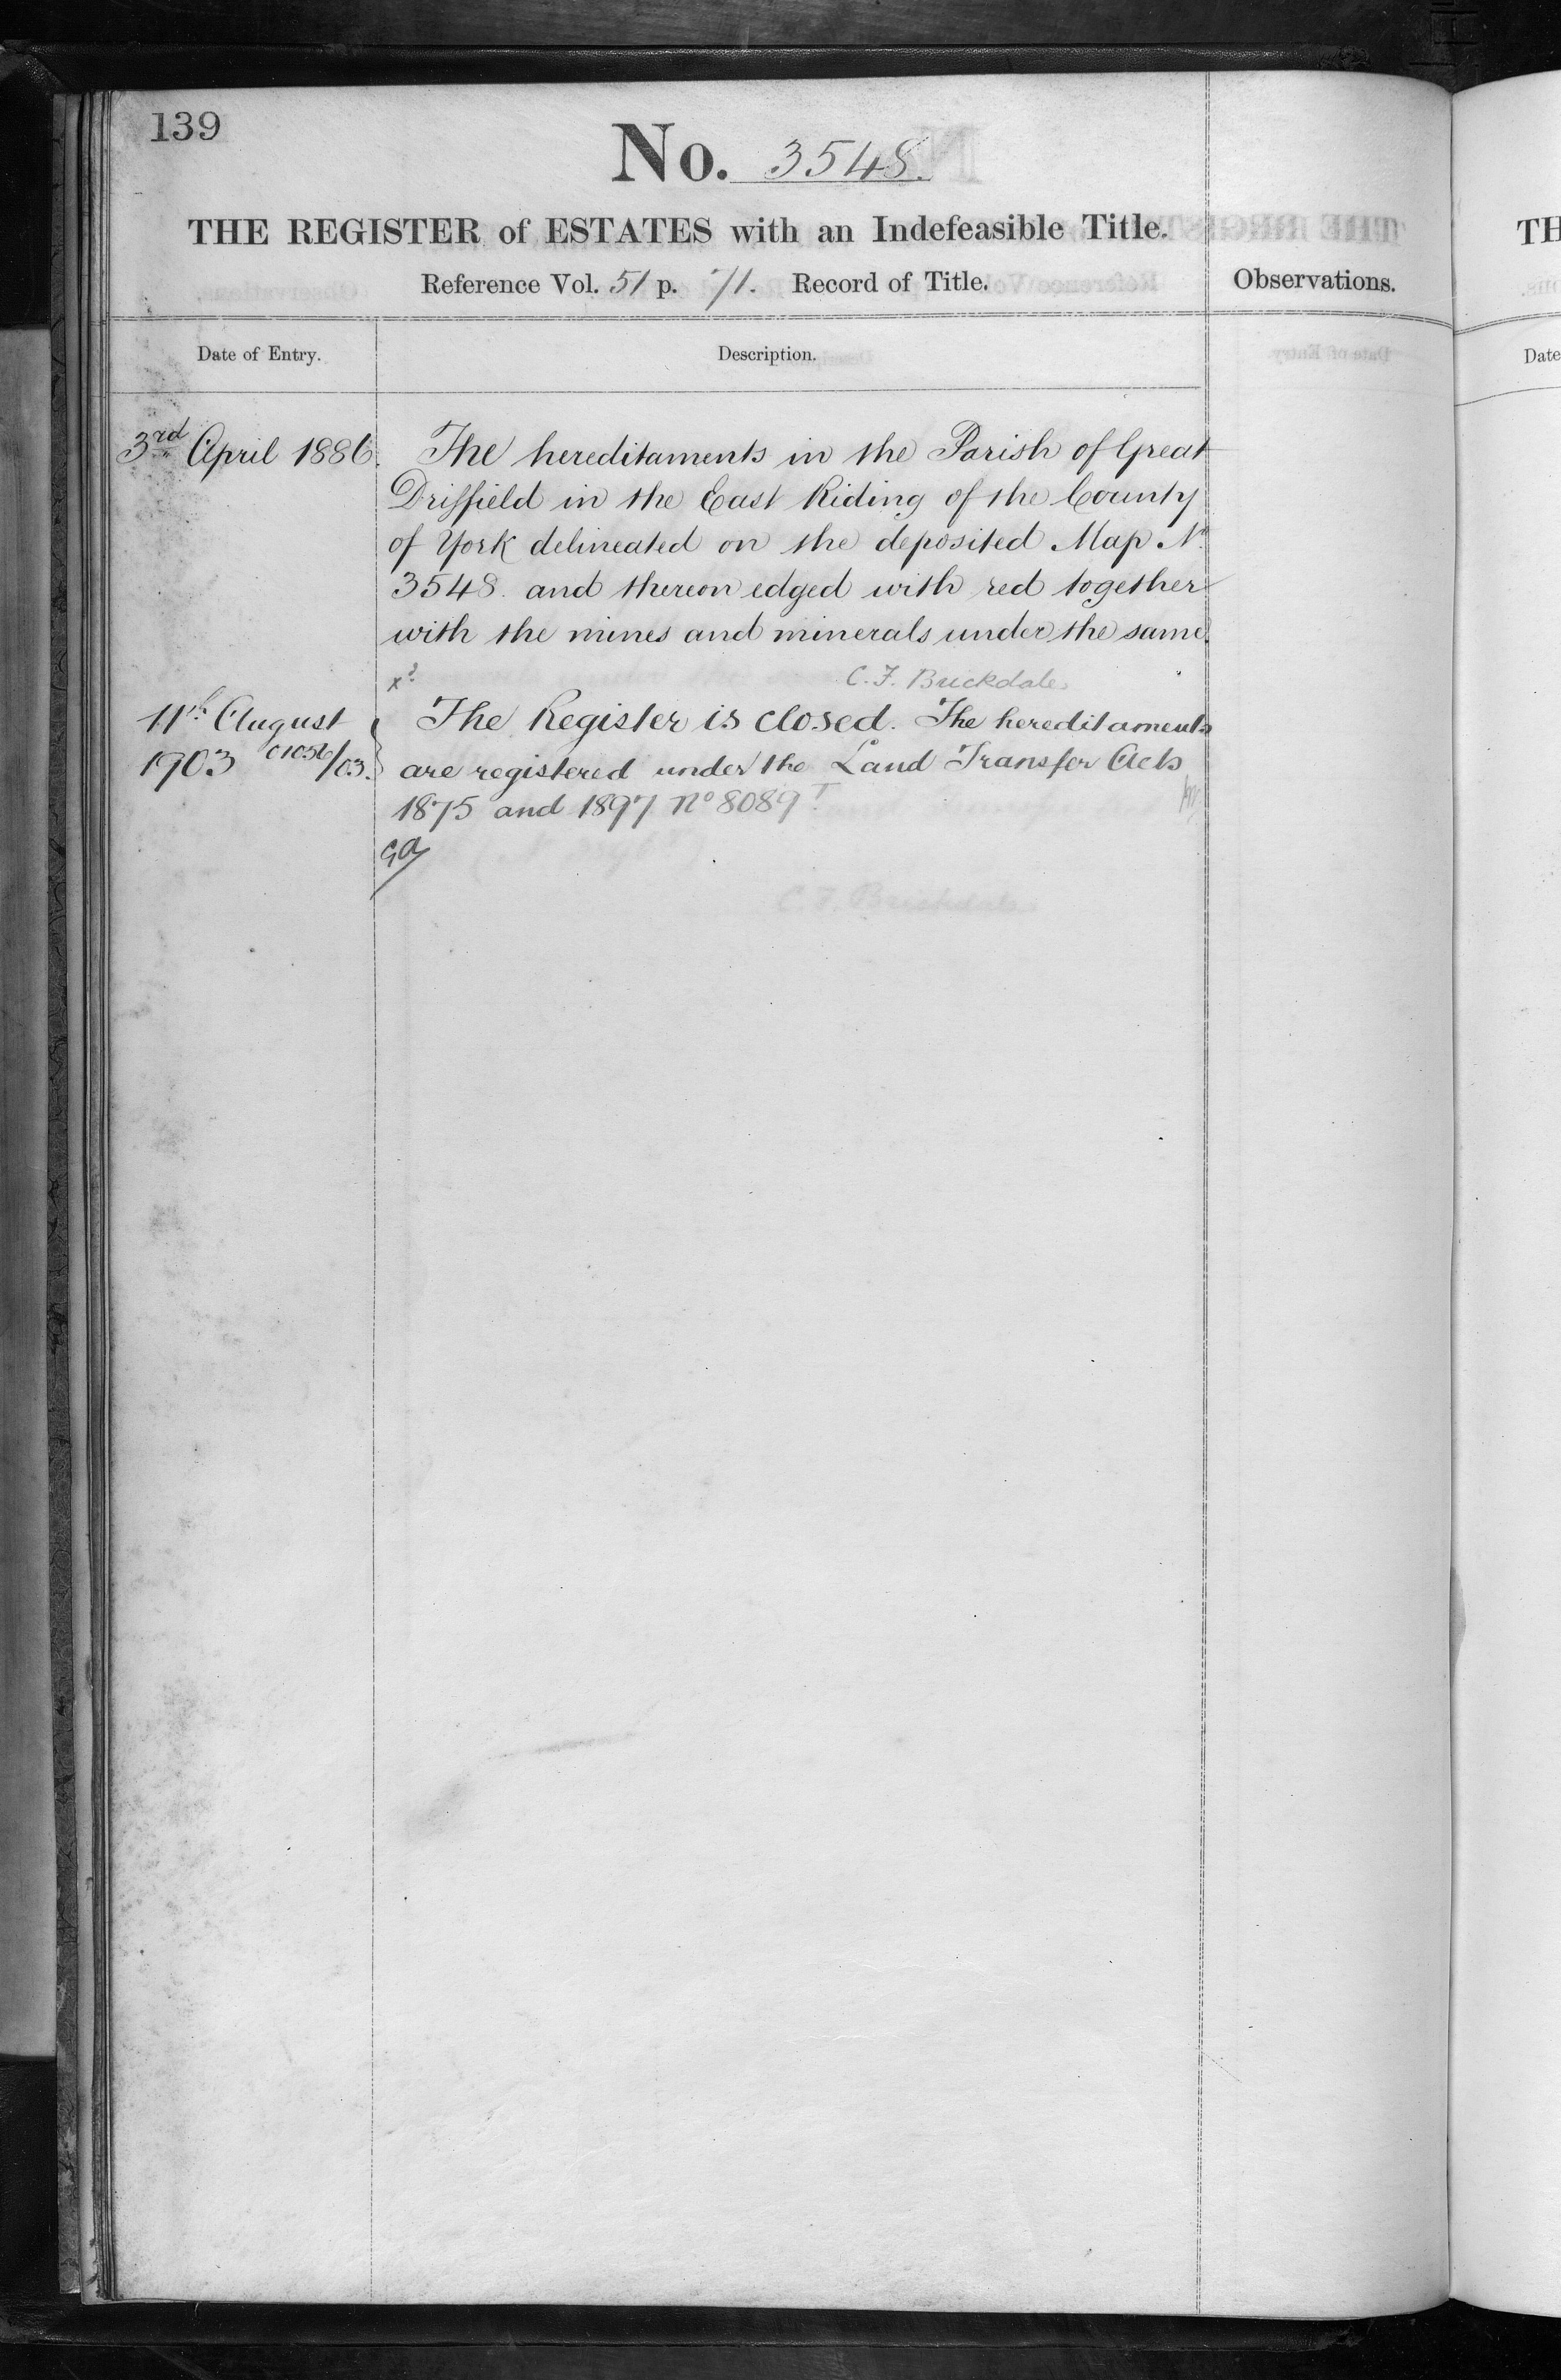 139
No. 3548.
THE REGISTER of ESTATES with an Indefeasible Title.
Reference Vol. 51 p. 71. Record of Title.
Observations.
Date of Entry.
Description.
3rd April 1886.
The hereditaments in the Parish of Great
Driffield in the East Riding of the County
of York delineated on the deposited Map No.
3548. and thereon edged with red together
with the mines and minerals under the same.
C. F. Brickdale
11th August
1903 C1056/03.
The Register is closed. The hereditaments
are registered under the Land Transfer Acts
1875 and 1897 No 8089
C. F. Brickdale
TH
Date